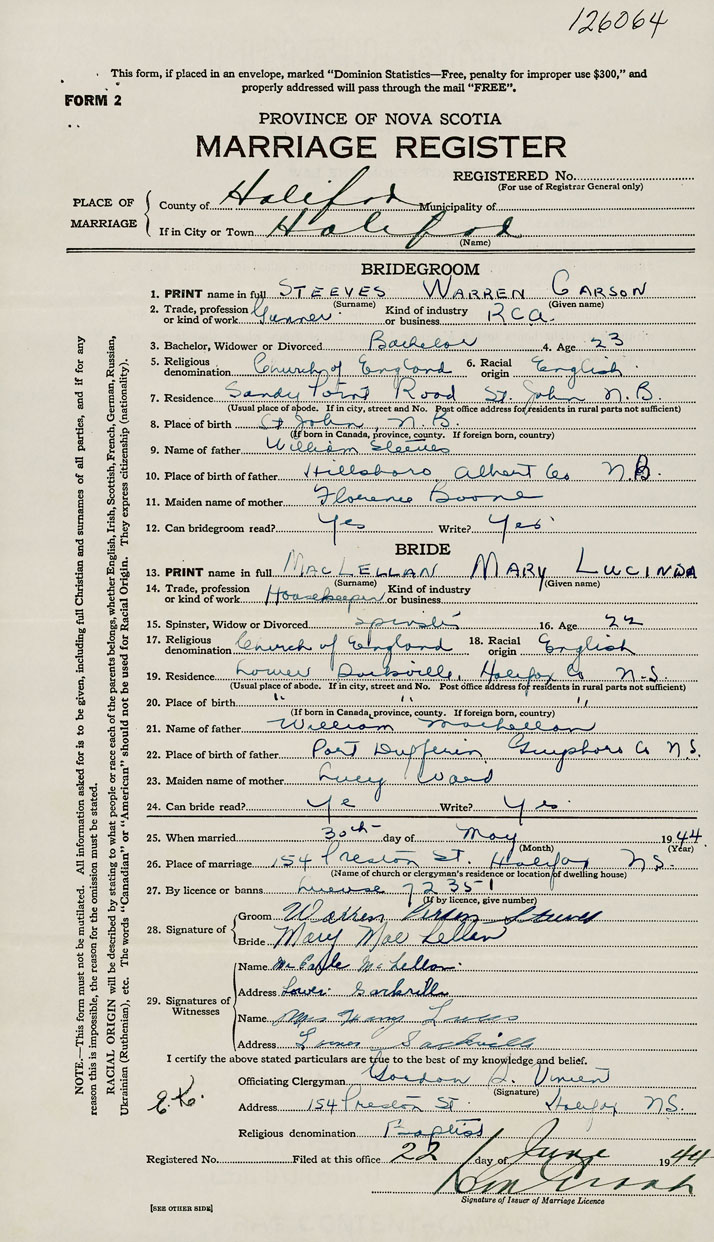 126064
This form, if placed in an envelope, marked “Dominion Statistics—Free, penalty for improper use $300,” and
properly addressed will pass through the mail “FREE”.
FORM 2
PROVINCE OF NOVA SCOTIA
MARRIAGE REGISTER
REGISTERED No.
(For use of Registrar General only)
PLACE OF MARRIAGE
County of Halifax Municipality of
If in City or Town Halifax
(Name)
BRIDEGROOM
1. PRINT name in full STEEVES WARREN CARSON
(Surname) (Given name)
2. Trade, profession or kind of work Gunner Kind of industry or business RCA.
3. Bachelor, Widower or Divorced Bachelor 4. Age 23
5. Religious denomination Church of England 6. Racial origin English
7. Residence Sandy Point Road St. John N.B.
(Usual place of abode. If in city, street and No. Post office address for residents in rural parts not sufficient)
8. Place of birth St John, N.B.
(If born in Canada, province, county. If foreign born, country)
9. Name of father William Steeves
10. Place of birth of father Hillsboro Albert Co N.B.
11. Maiden name of mother Florence Boone
12. Can bridegroom read? Yes Write? Yes
BRIDE
13. PRINT name in full MACLELLAN MARY LUCINDA
(Surname) (Given name)
14. Trade, profession or kind of work Housekeeper Kind of industry or business
15. Spinster, Widow or Divorced 16. Age 22
17. Religious denomination Church of England 18. Racial origin English
19. Residence Lower Sackville, Halifax Co N.S.
(Usual place of abode. If in city, street and No. Post office address for residents in rural parts not sufficient)
20. Place of birth " " "
(If born in Canada, province, county. If foreign born, country)
21. Name of father William MacLellan
22. Place of birth of father Port Dufferin, Guysboro Co N.S.
23. Maiden name of mother Lucy Ward
24. Can bride read? Ye Write? Yes
25. When married 30th day of May 1944
(Month) (Year)
26. Place of marriage 154 Preston St. Halifax N.S.
(Name of church or clergyman's residence or location of dwelling house)
27. By licence or banns License 72351
(If by licence, give number)
28. Signature of
Groom Warren Steeves
Bride Mary MacLellan
29. Signatures of Witnesses
Name McLellan
Address Lower Sackville
Name Mrs Lucas
Address Lower Sackville
I certify the above stated particulars are true to the best of my knowledge and belief.
Officiating Clergyman Gordon Vincent
(Signature)
Address 154 Preston St. Halifax N.S.
Religious denomination Baptist
Registered No. Filed at this office 22 day of June 1944
Signature of Issuer of Marriage Licence
[SEE OTHER SIDE]
NOTE.—This form must not be mutilated. All information asked for is to be given, including full Christian and surnames of all parties, and if for any
reason this is impossible, the reason for the omission must be stated.
RACIAL ORIGIN will be described by stating to what people or race each of the parents belongs, whether English, Irish, Scottish, French, German, Russian,
Ukrainian (Ruthenian), etc. The words “Canadian” or “American” should not be used for Racial Origin. They express citizenship (nationality).